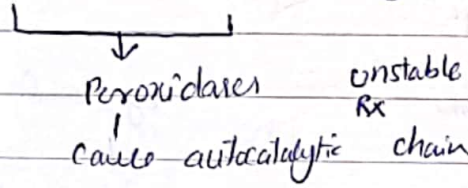 Peroxidases unstable
Rx
cause autocatalytic chain